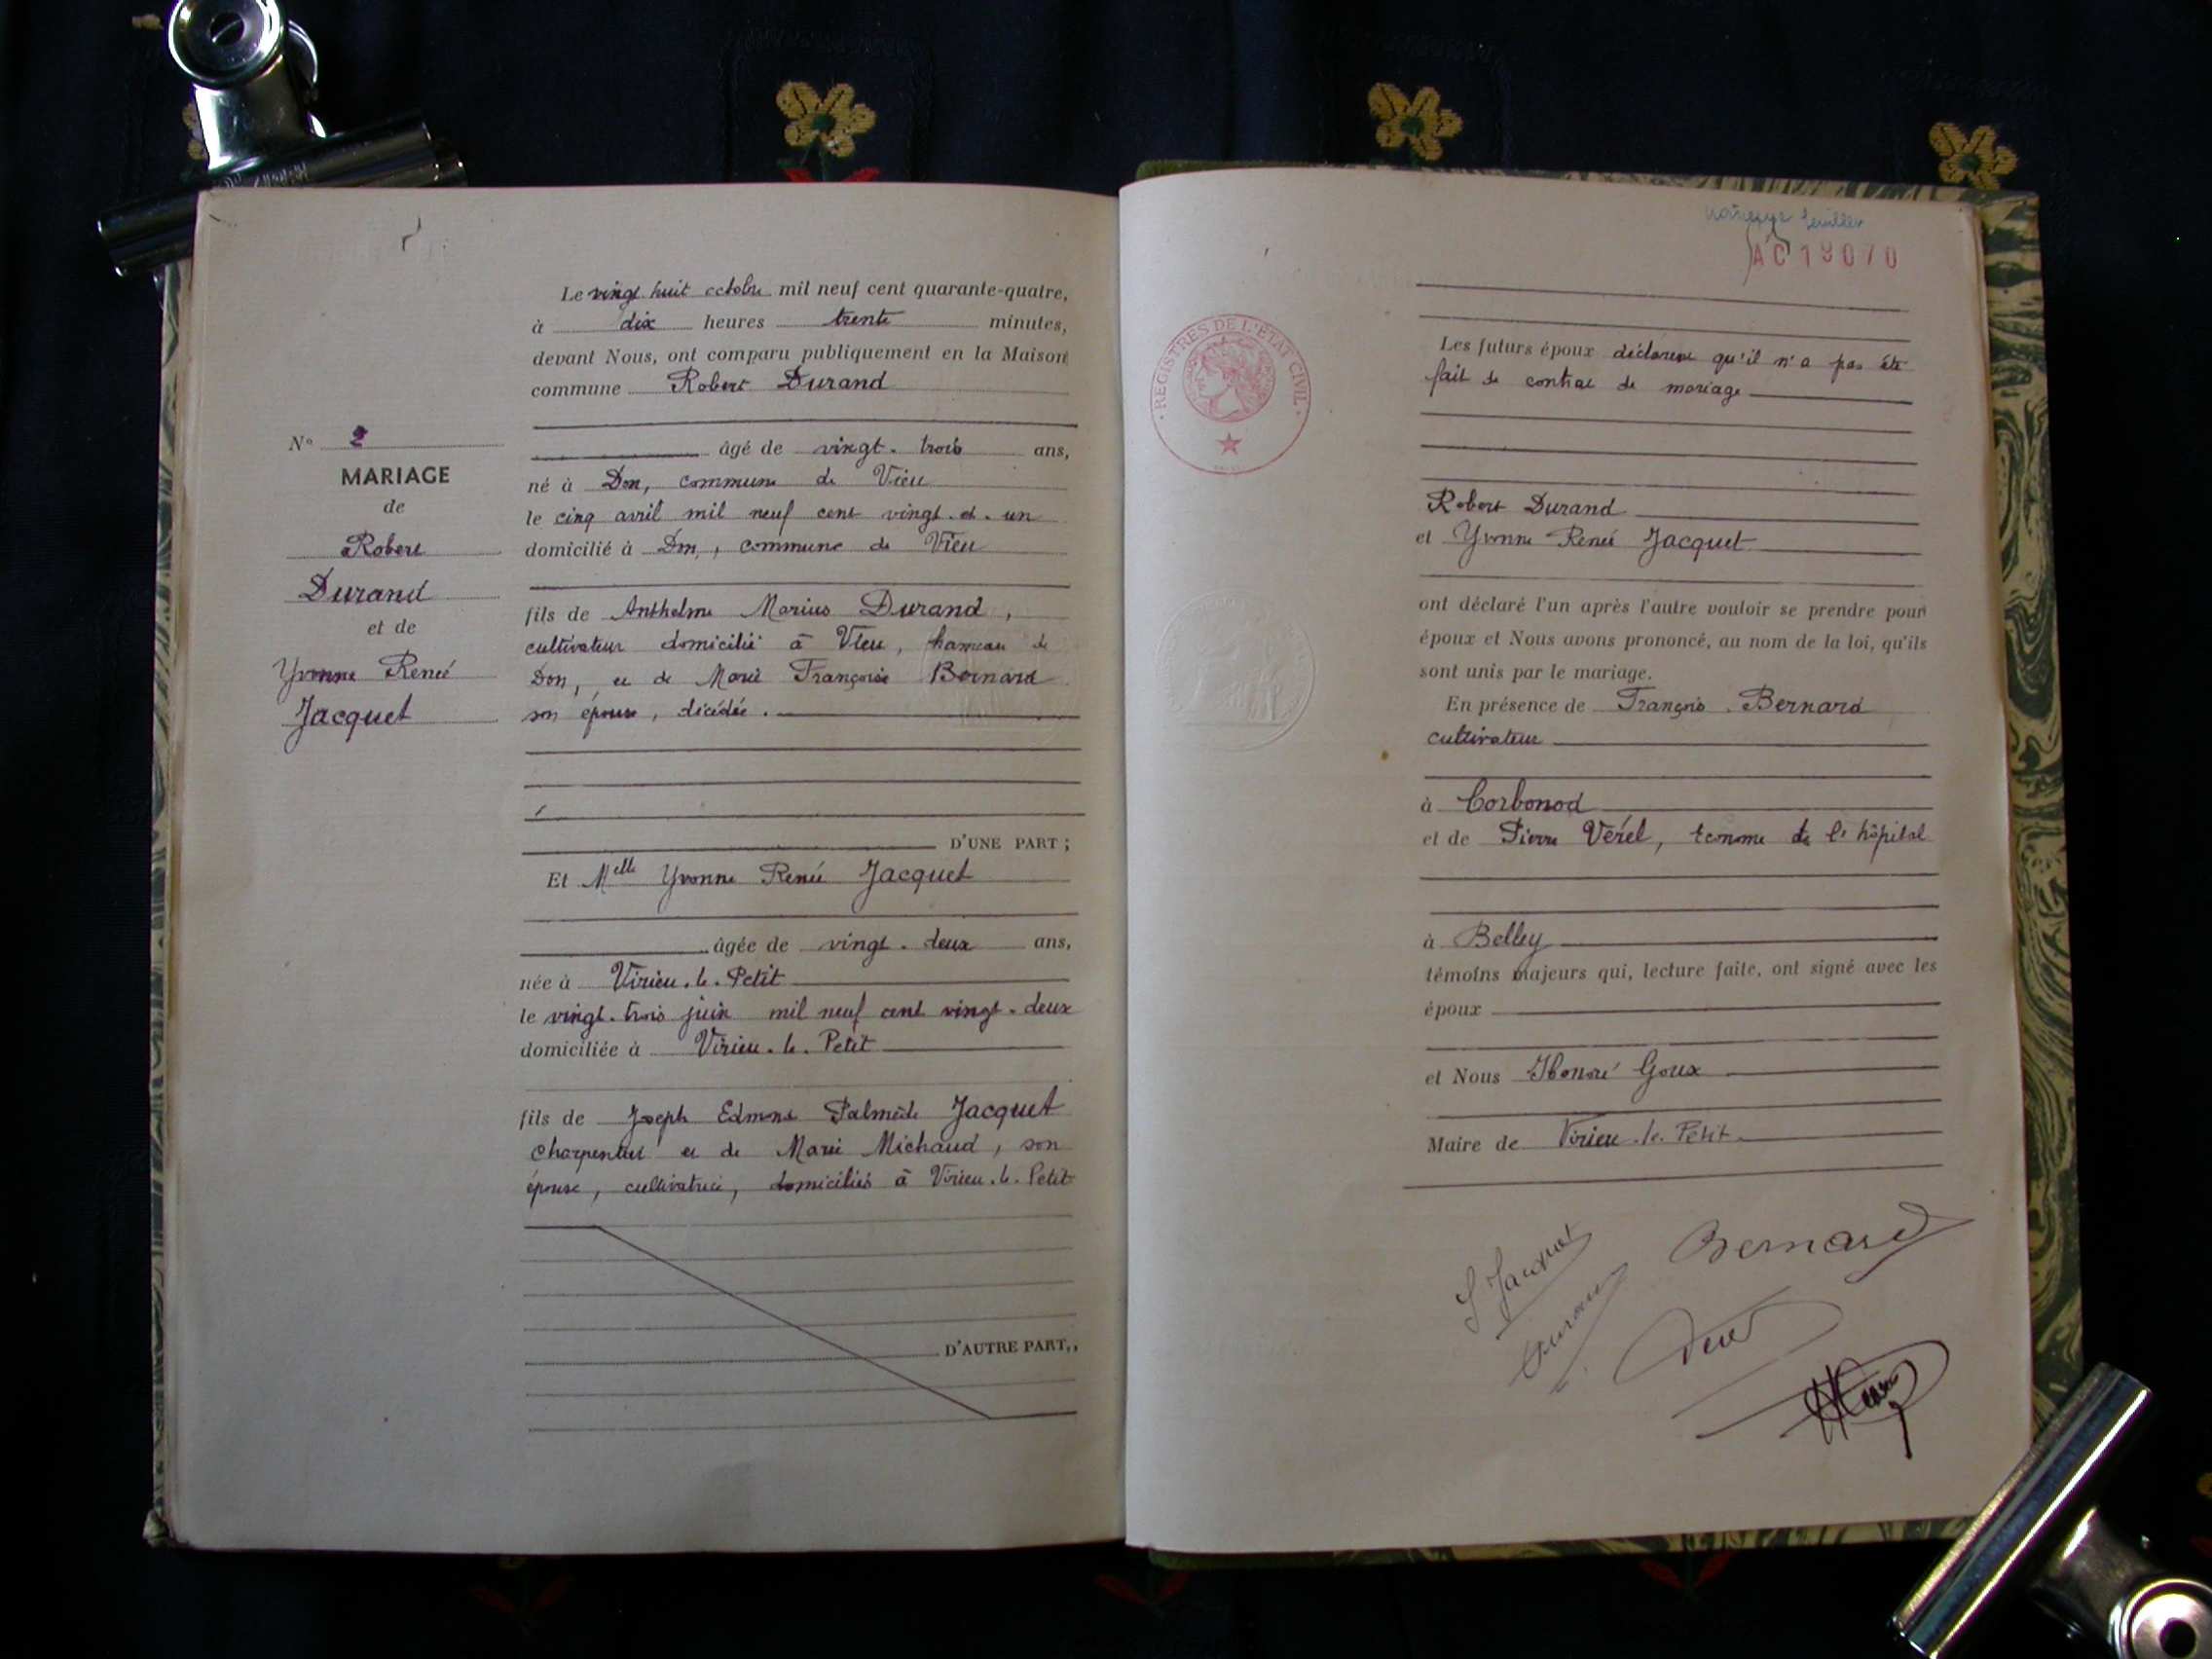 Le vingt huit octobre mil neuf cent quarante-quatre,
à dix heures trente minutes,
devant Nous, ont comparu publiquement en la Maison
commune Robert Durand
âgé de vingt-trois ans,
né à Don, commune de Vieu
le cinq avril mil neuf cent vingt-et-un
domicilié à Don, commune de Vieu
N° 2
MARIAGE
de
Robert
Durand
et de
Yvonne Renée
Jacquet
fils de Anthelme Marius Durand,
cultivateur domicilié à Vieu, hameau de
Don, et de Marie Françoise Bernard
son épouse, décédée.
D'UNE PART ;
Et Melle Yvonne Renée Jacquet
âgée de vingt-deux ans,
née à Virieu-le-Petit
le vingt-trois juin mil neuf cent vingt-deux
domiciliée à Virieu-le-Petit
fils de Joseph Edmond Palmède Jacquet
charpentier et de Marie Michaud, son
épouse, cultivatrice, domiciliés à Virieu-le-Petit
D'AUTRE PART,,
feuillet
AC19070
REGISTRES DE L'ÉTAT CIVIL
Les futurs époux déclarent qu'il n'a pas été
fait de contrat de mariage
Robert Durand
et Yvonne Renée Jacquet
ont déclaré l'un après l'autre vouloir se prendre pour
époux et Nous avons prononcé, au nom de la loi, qu'ils
sont unis par le mariage.
En présence de François Bernard
cultivateur
à Corbonod
et de Pierre Vérel, économe de l'hôpital
à Belley
témoins majeurs qui, lecture faite, ont signé avec les
époux
et Nous Honoré Goux
Maire de Virieu-le-Petit
Y Jacquet
Durand
Bernard